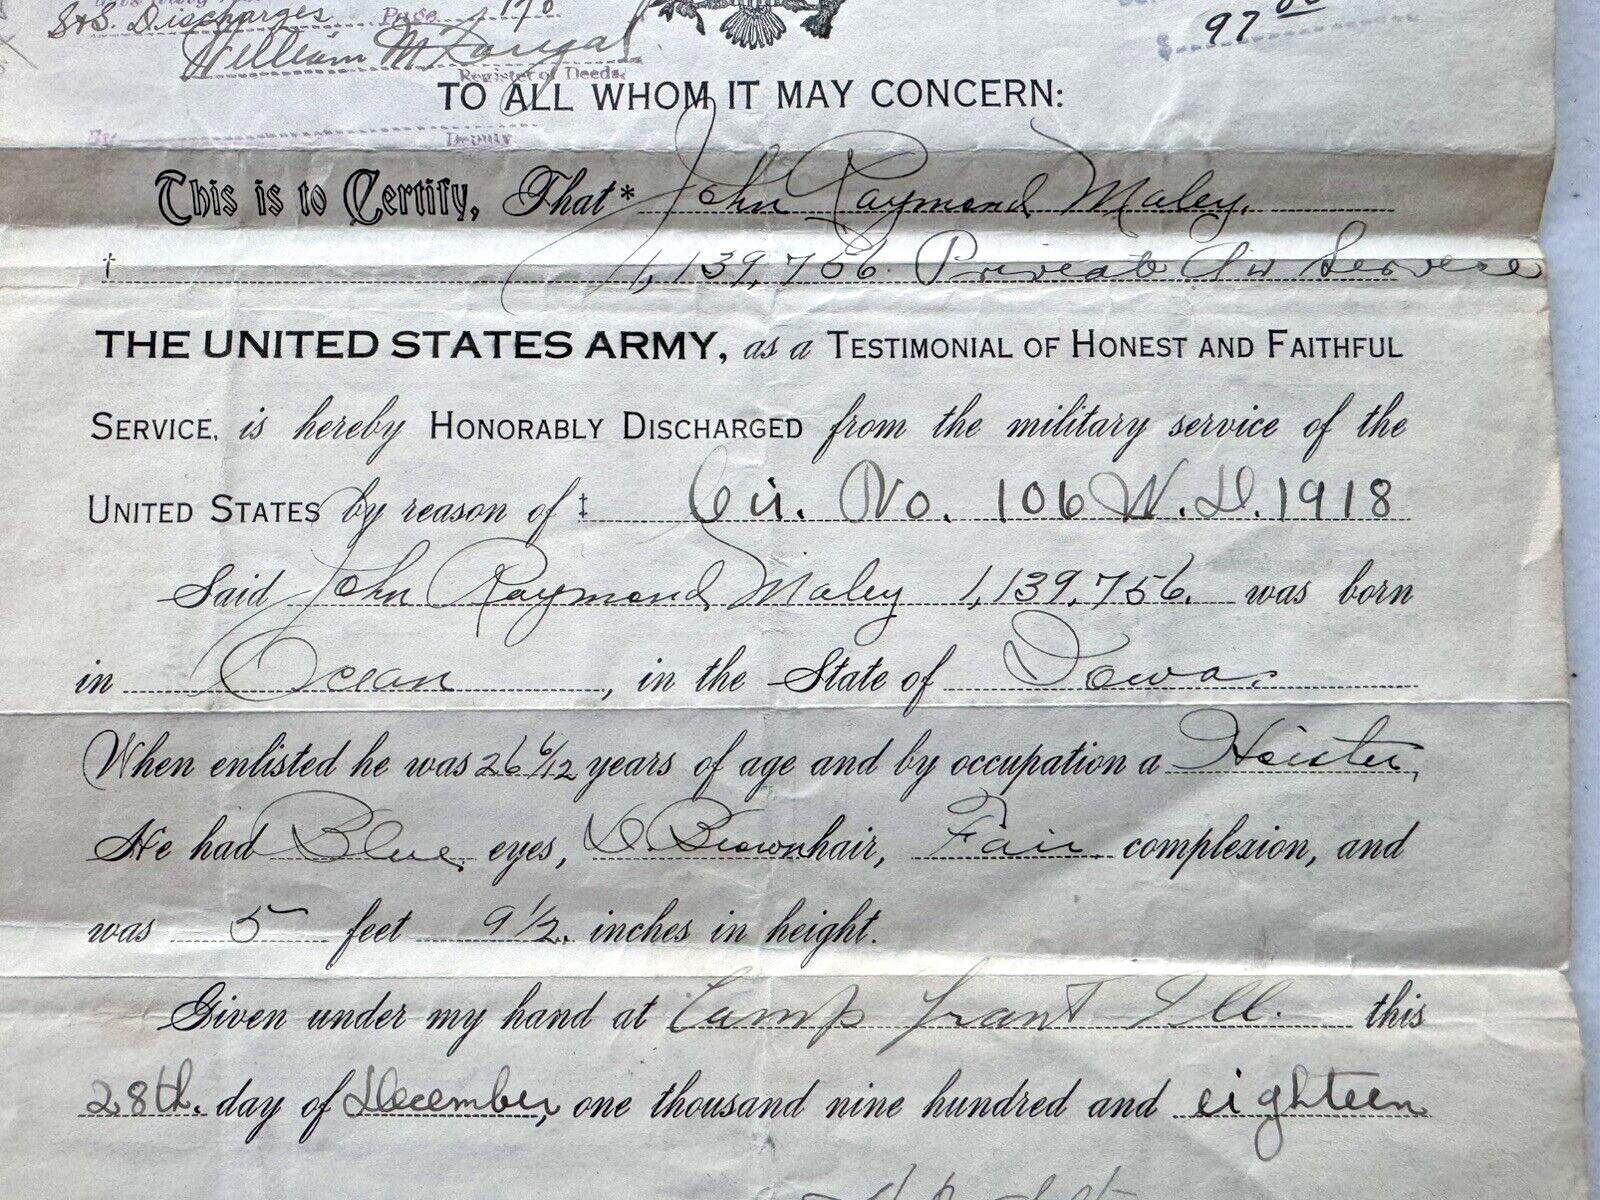 S & S. Discharges Page 178
William M
Register of Deeds.
97 00
TO ALL WHOM IT MAY CONCERN:
By Deputy
This is to Certify, That* John Raymond Maley.
† 1,139,756. Private Air Service
THE UNITED STATES ARMY, as a TESTIMONIAL OF HONEST AND FAITHFUL
SERVICE, is hereby HONORABLY DISCHARGED from the military service of the
UNITED STATES by reason of ‡ Cir. No. 106 W. D. 1918
Said John Raymond Maley 1,139,756. was born
in Ocean, in the State of Iowa.
When enlisted he was 26 6/12 years of age and by occupation a
He had Blue eyes, D. Brown hair, Fair complexion, and
was 5 feet 9 1/2 inches in height.
Given under my hand at Camp Grant Ill. this
28th. day of December, one thousand nine hundred and eighteen